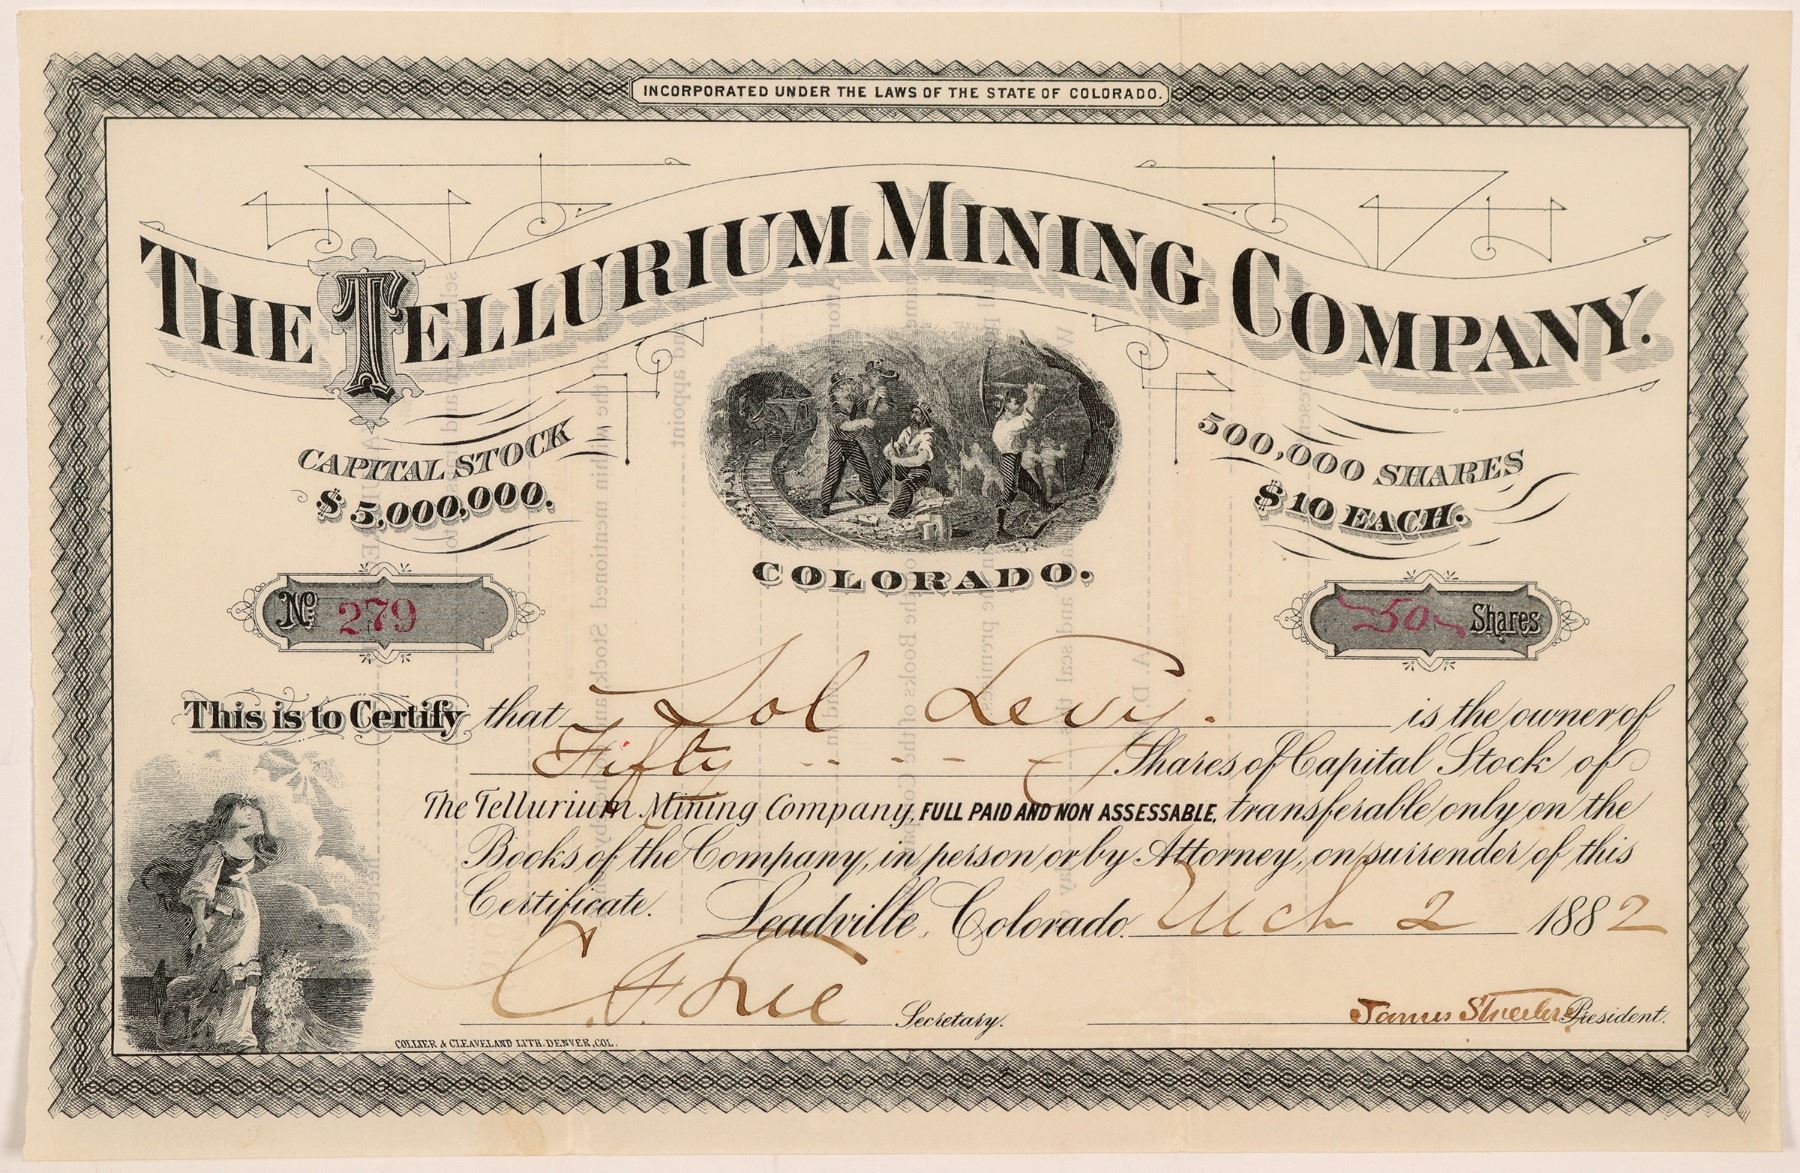 INCORPORATED UNDER THE LAWS OF THE STATE OF COLORADO.
THE TELLURIUM MINING COMPANY.
CAPITAL STOCK
$5,000,000.
500,000 SHARES
$10 EACH.
COLORADO.
No 279
50 Shares
This is to Certify that Sol Levy. is the owner of
Fifty Shares of Capital Stock of
The Tellurium Mining Company, FULL PAID AND NON ASSESSABLE, transferable only on the
Books of the Company, in person or by Attorney, on surrender of this
Certificate. Leadville, Colorado. Mch 2 1882
C. F. Lee Secretary. James Streeter President.
COLLIER & CLEAVELAND LITH. DENVER, COL.